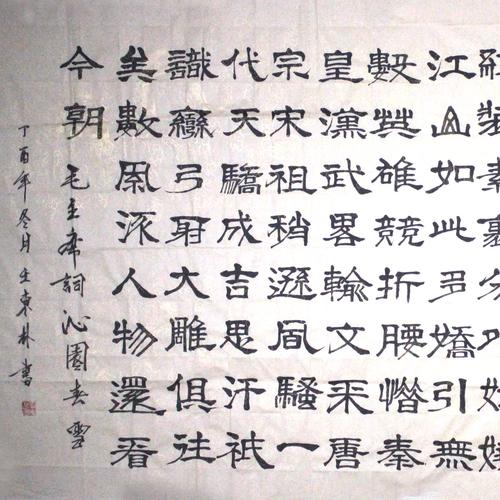 紅裝素裹分外妖嬈
江山如此多嬌引無
數英雄競折腰惜秦
皇漢武畧輸文采唐
宗宋祖稍遜風騷一
代天驕成吉思汗祇
識彎弓射大雕俱往
矣數風流人物還看
今朝 毛主席詞沁園春雪
丁酉年冬月 東林書